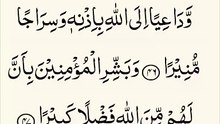 وَّدَاعِيًا اِلَى اللّٰهِ بِاِذْنِهٖ وَسِرَاجًا
مُّنِيْرًا ﴿۴۶﴾ وَبَشِّرِ الْمُؤْمِنِيْنَ بِاَنَّ
لَهُمْ مِّنَ اللّٰهِ فَضْلًا كَبِيْرًا ﴿۴۷﴾